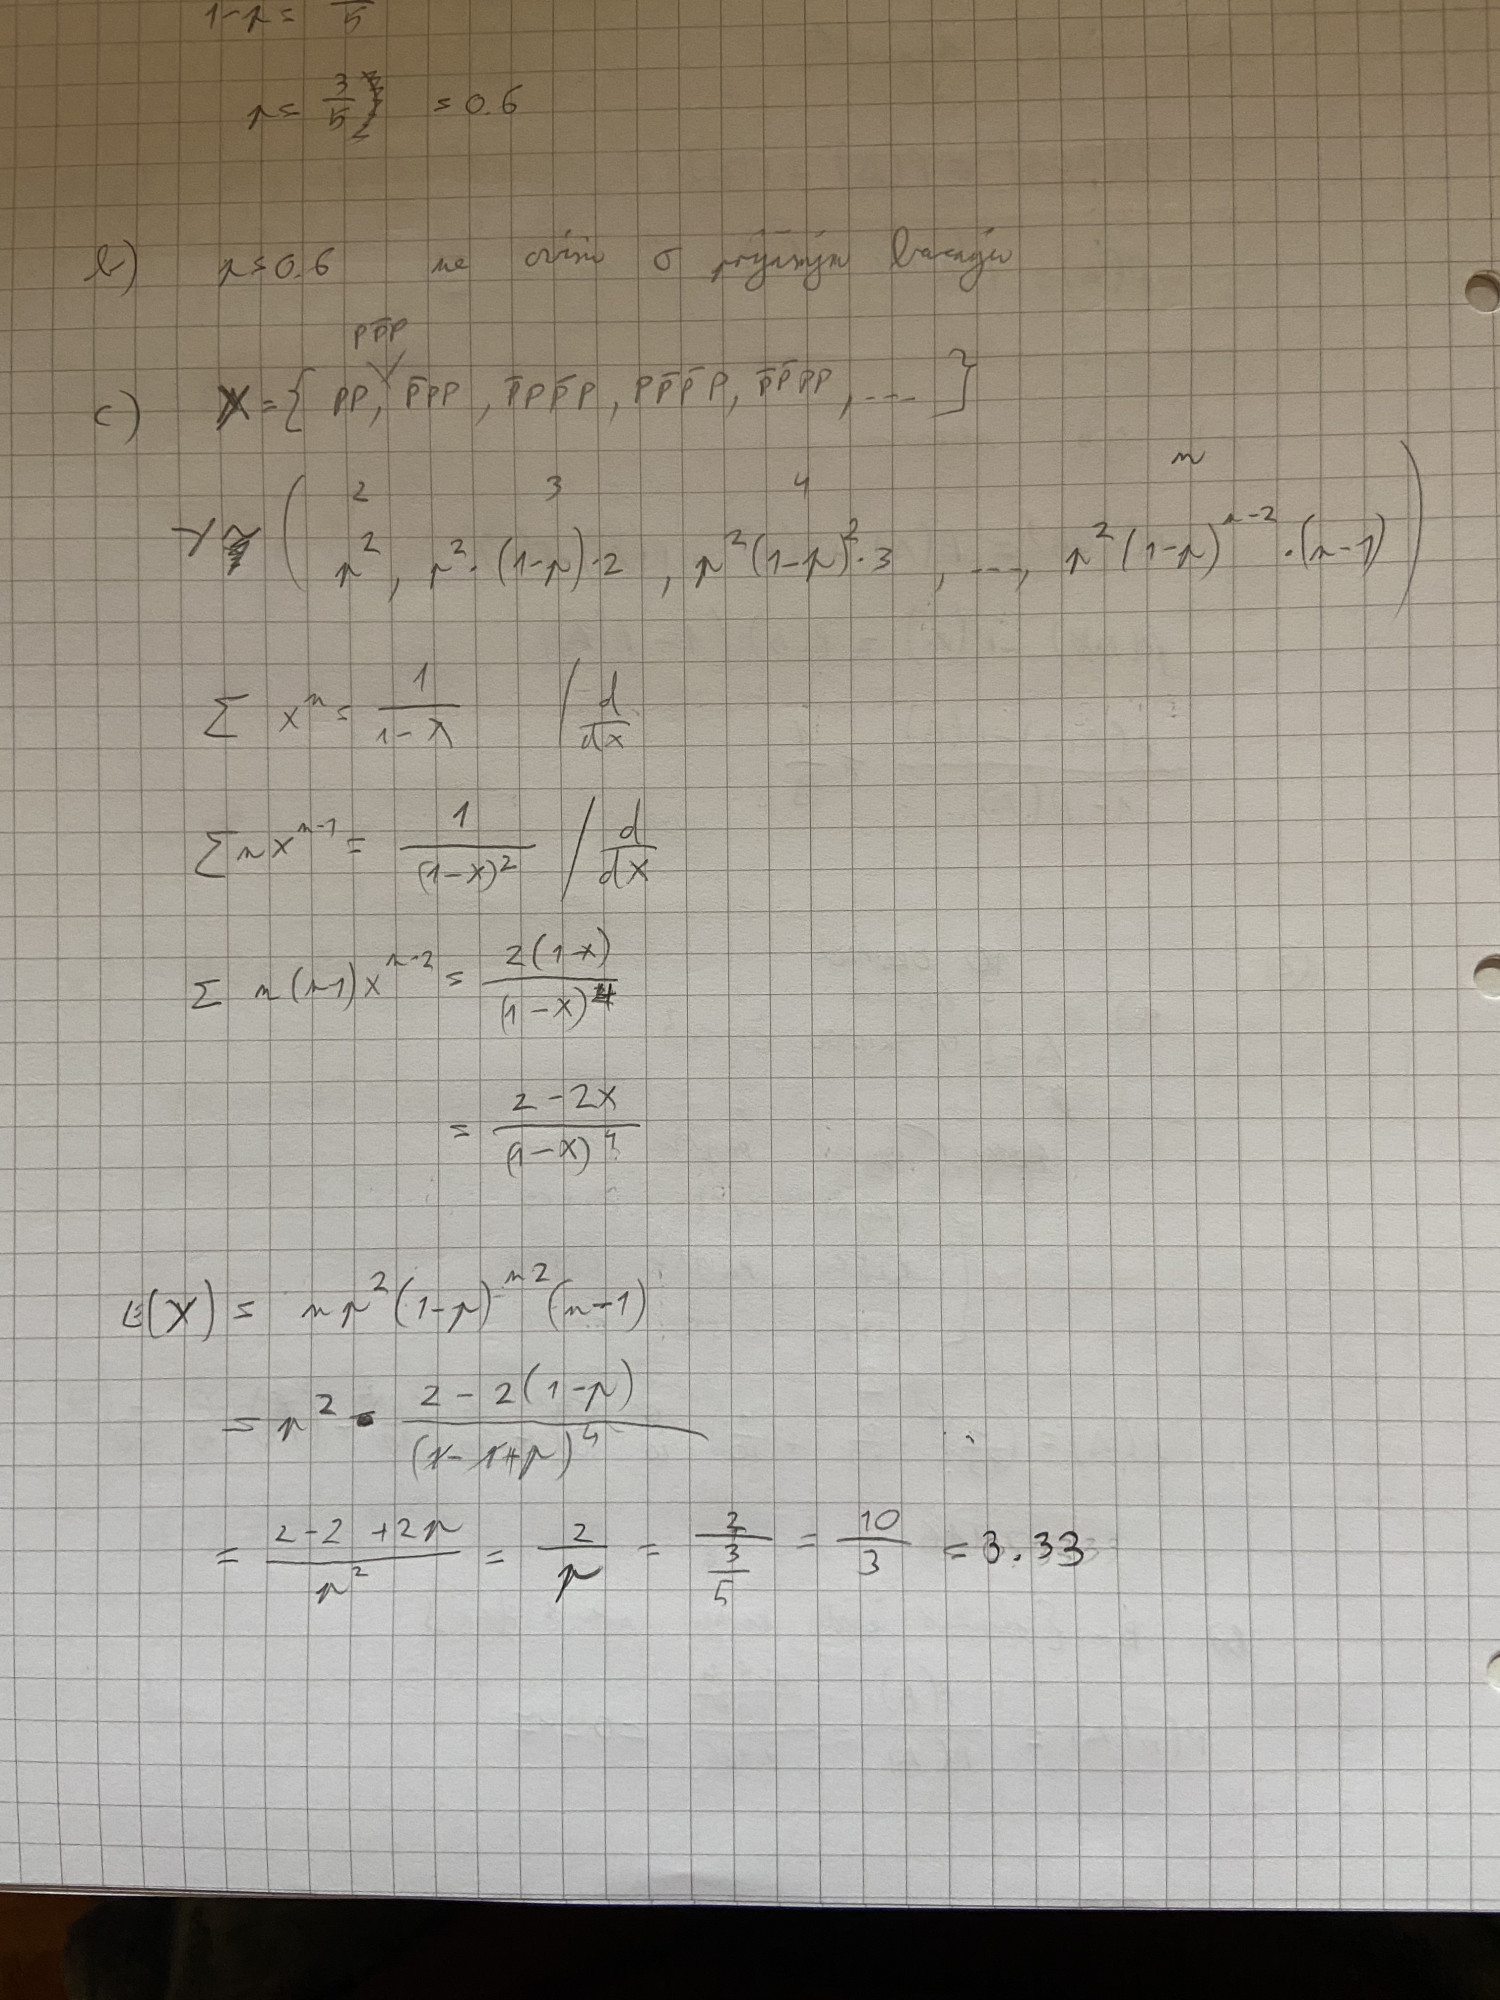 1-p = —/5
p = 3/5 = 0.6
b) p = 0.6 ne ovisi o
PP̄P
c) X = { PP, P̄PP, P̄PP̄P, PP̄P̄P, P̄P̄PP, .... }
2 3 4 n
Y ( p², p²·(1-p)·2, p²(1-p)²·3, ..., p²(1-p)^(n-2)·(n-1) )
Σ xⁿ = 1/(1-x) / d/dx
Σ n x^(n-1) = 1/(1-x)² / d/dx
Σ n(n-1)x^(n-2) = 2(1-x)/(1-x)⁴
= (2-2x)/(1-x)⁴
E(X) = n p² (1-p)^(n-2) (n-1)
= p² · (2-2(1-p))/(1-1+p)⁴
= (2-2+2p)/p² = 2/p = 2/(3/5) = 10/3 = 3.33